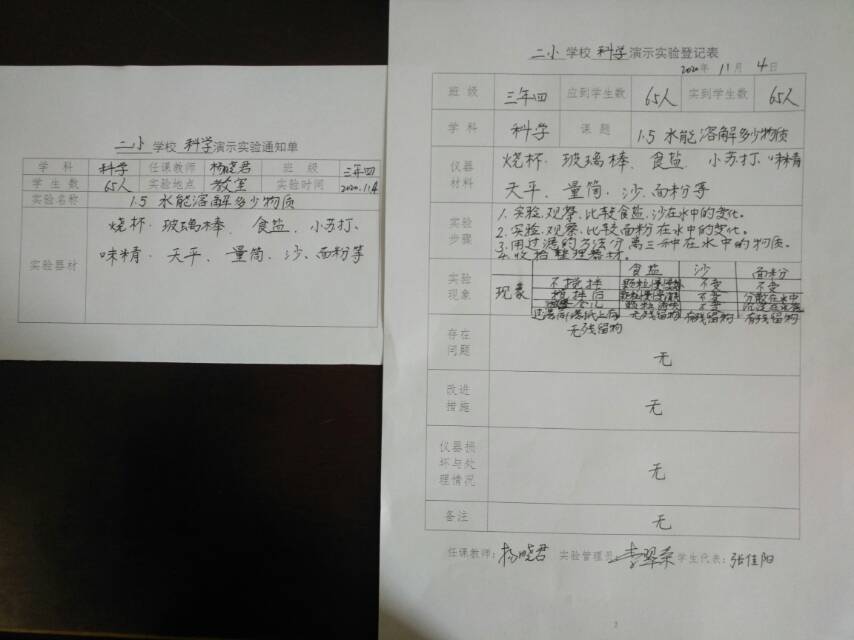 二小 学校 科学 演示实验通知单
学科 科学 任课教师 杨晓君 班级 三年四
学生数 65人 实验地点 教室 实验时间 2020.11.4
实验名称 1.5 水能溶解多少物质
实验器材 烧杯、玻璃棒、食盐、小苏打、
味精、天平、量筒、沙、面粉等
二小 学校 科学 演示实验登记表
2020年 11月 4日
班级 三年四 应到学生数 65人 实到学生数 65人
学科 科学 课题 1.5 水能溶解多少物质
仪器材料 烧杯、玻璃棒、食盐、小苏打、味精
天平、量筒、沙、面粉等
实验步骤 1.实验、观察、比较食盐、沙在水中的变化。
2.实验、观察、比较面粉在水中的变化。
3.用过滤的方法分离三种在水中的物质。
4.收拾整理器材。
实验现象 现象 食盐 沙 面粉
不搅拌 不变 不变
搅拌后 不变 分散在水中
颗粒 不变
过滤后滤纸上有无残留物 无残留物 有残留物 有残留物
存在问题 无
改进措施 无
仪器损坏与处理情况 无
备注 无
任课教师：杨晓君 实验管理员： 学生代表：张佳阳